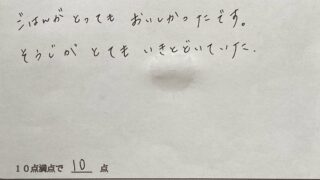 ごはんが とっても おいしかったです。
そうじが とても いきとどいていた.
10点満点で 10 点